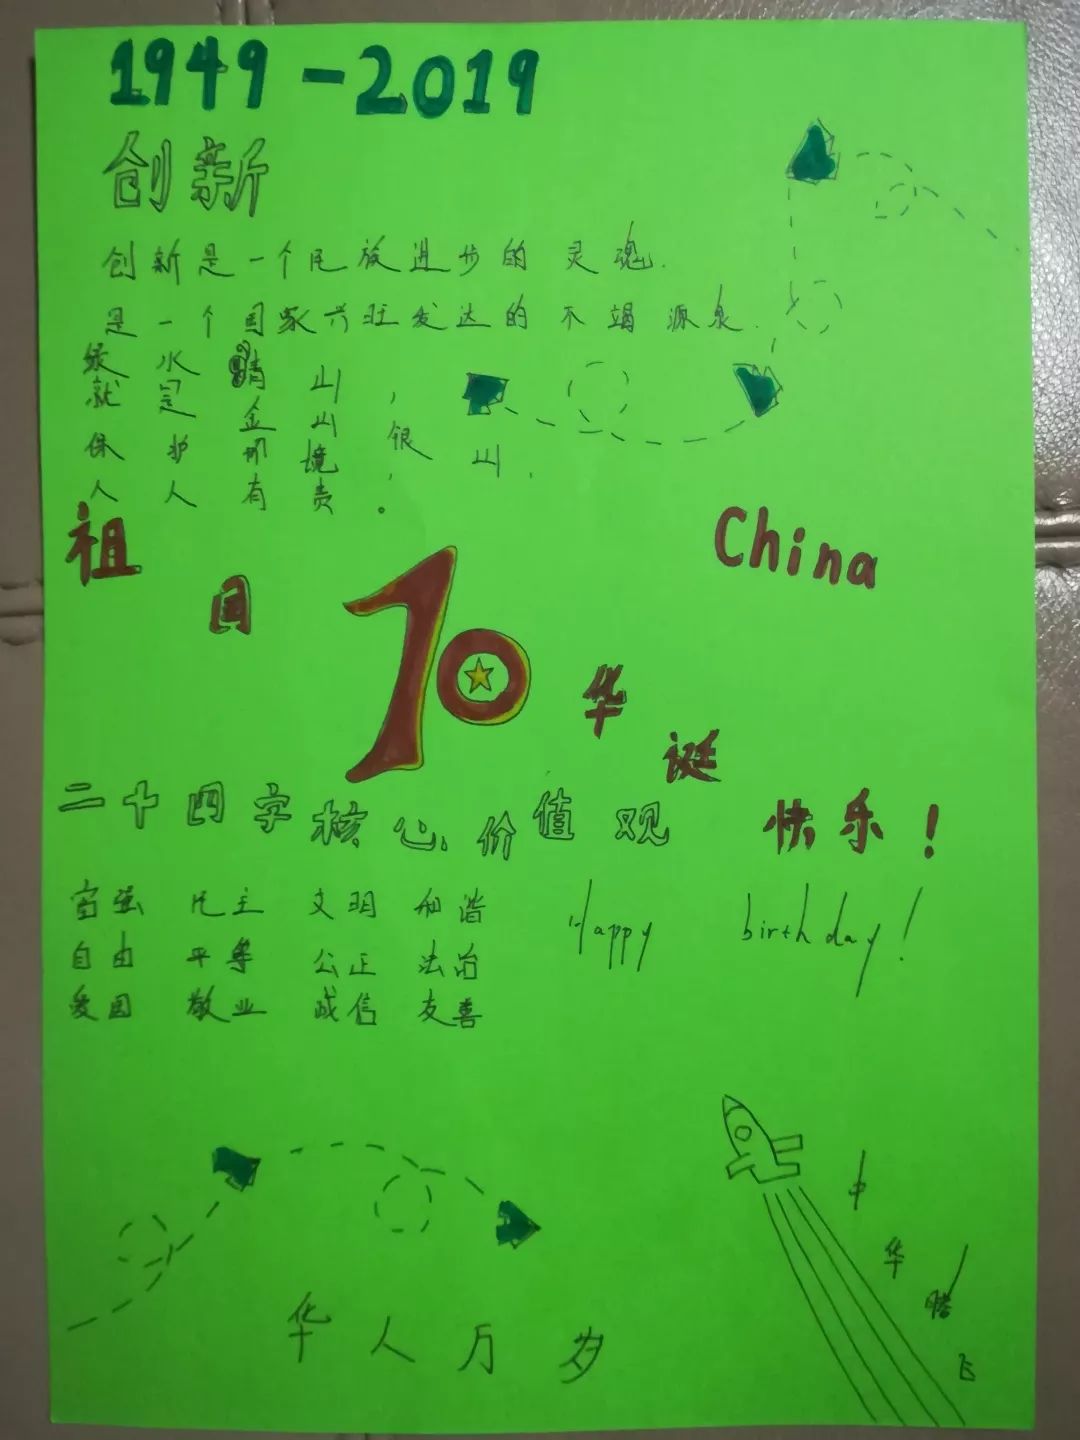 1949-2019
创新
创新是一个民族进步的灵魂.
是一个国家兴旺发达的不竭源泉.
绿水青山,
就是金山银山.
保护环境,
人人有责.
祖国70华诞快乐!
China
Happy birthday!
二十四字核心价值观
富强 民主 文明 和谐
自由 平等 公正 法治
爱国 敬业 诚信 友善
中华腾飞
华人万岁